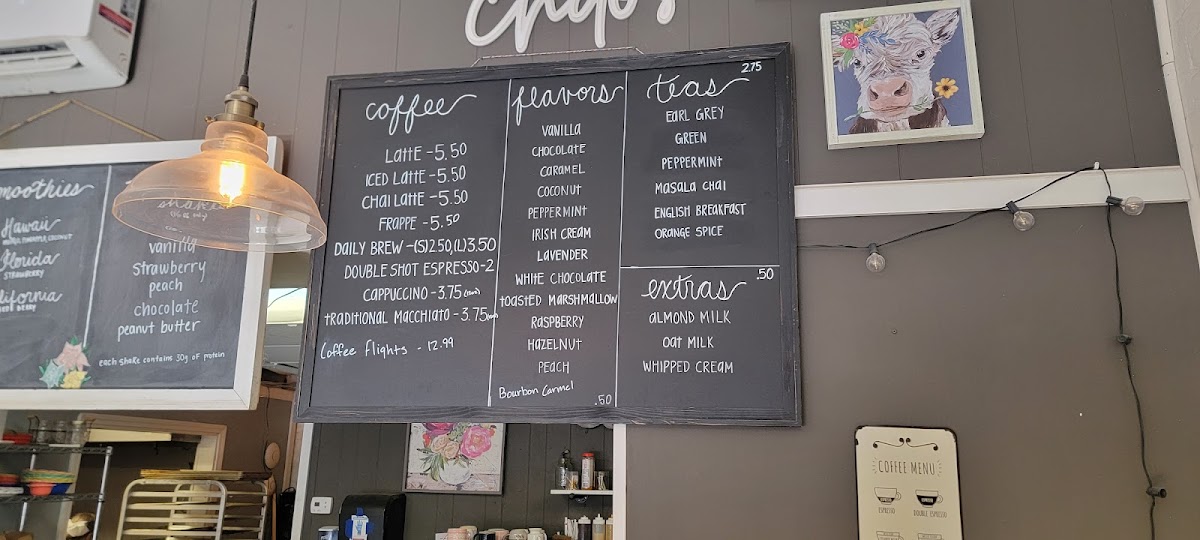 smoothies
Hawaii
Florida
STRAWBERRY
California
shake
vanilla
strawberry
peach
chocolate
peanut butter
each shake contains 30g of protein
coffee
LATTE - 5.50
ICED LATTE - 5.50
CHAI LATTE - 5.50
FRAPPE - 5.50
DAILY BREW - (S)2.50, (L)3.50
DOUBLE SHOT ESPRESSO - 2
CAPPUCCINO - 3.75
TRADITIONAL MACCHIATO - 3.75
Coffee flights - 12.99
flavors
VANILLA
CHOCOLATE
CARAMEL
COCONUT
PEPPERMINT
IRISH CREAM
LAVENDER
WHITE CHOCOLATE
TOASTED MARSHMALLOW
RASPBERRY
HAZELNUT
PEACH
Bourbon Carmel
.50
teas 2.75
EARL GREY
GREEN
PEPPERMINT
MASALA CHAI
ENGLISH BREAKFAST
ORANGE SPICE
extras .50
ALMOND MILK
OAT MILK
WHIPPED CREAM
COFFEE MENU
ESPRESSO DOUBLE ESPRESSO